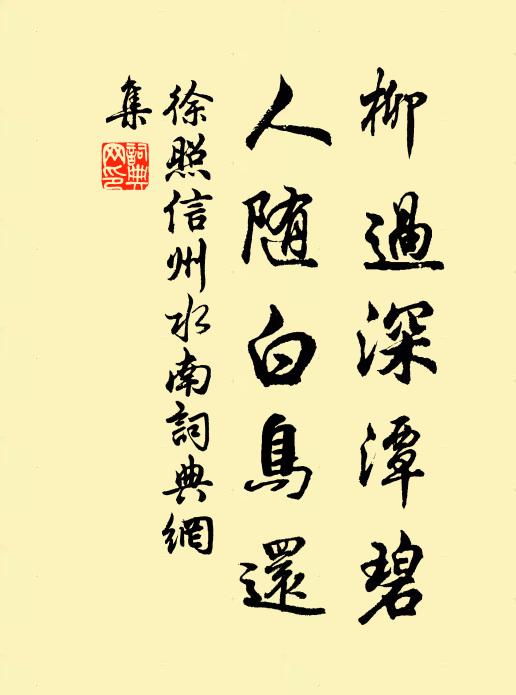 柳過深潭碧
人随白鳥還
徐照信州水南詞典網
集
詞典網印